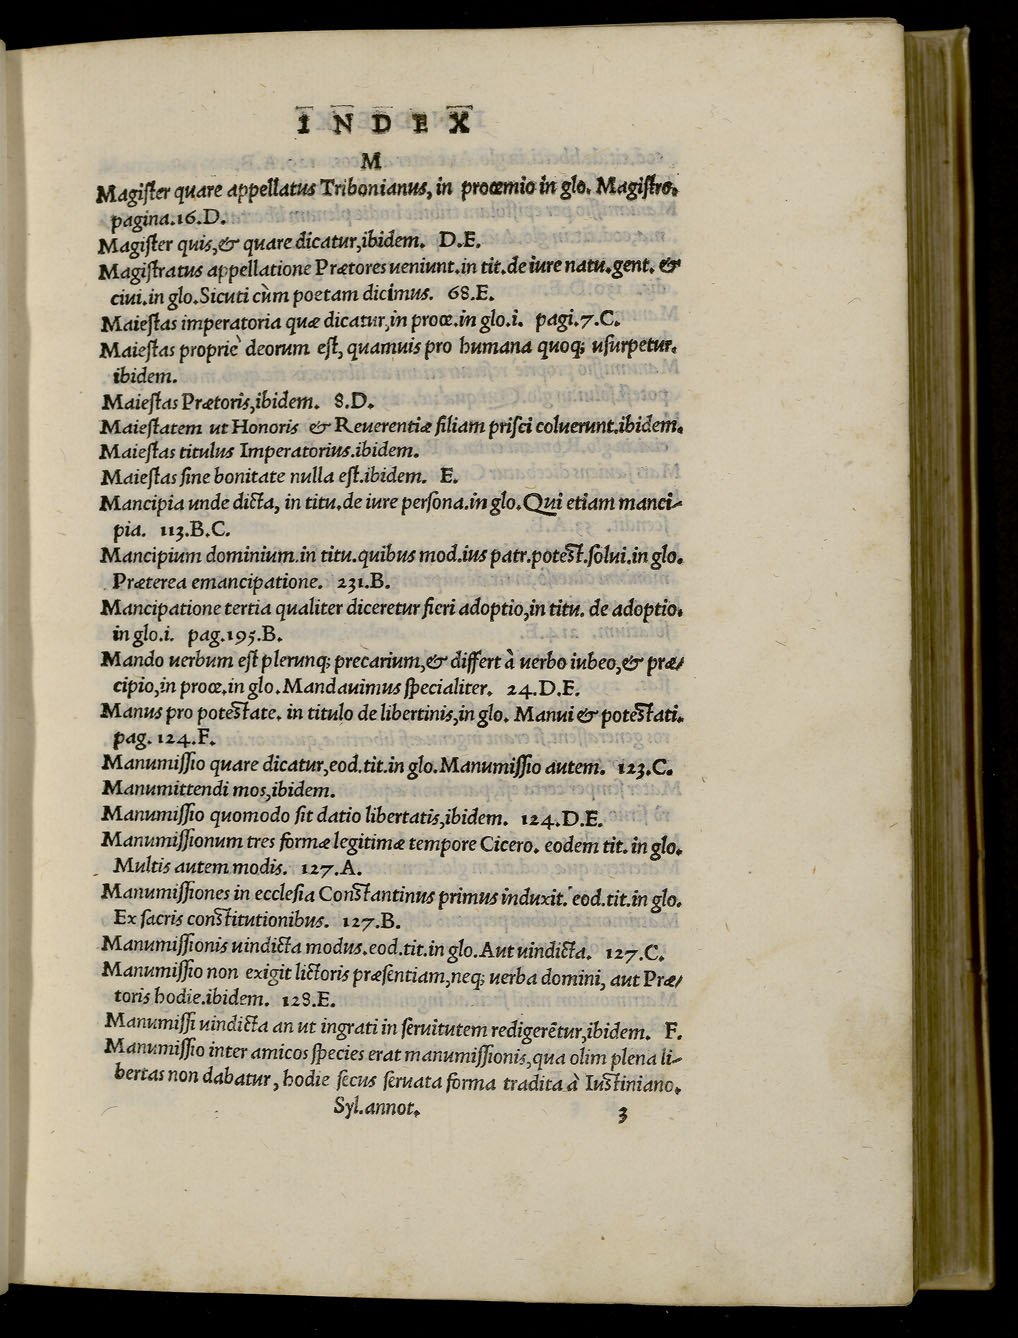 INDEX
M
Magiſter quare appellatus Tribonianus, in procemio in glo. Magiſtro.
pagina.16.D.
Magiſter quis,& quare dicatur,ibidem. D.E.
Magiſtratus appellatione Prætores ueniunt.in tit.de iure natu.gent. &
ciui.in glo.Sicuti cùm poetam dicimus. 68.E.
Maieſtas imperatoria quæ dicatur,in proœ.in glo.i. pagi.7.C.
Maieſtas propriè deorum eſt, quamuis pro humana quoq; uſurpetur.
ibidem.
Maieſtas Prætoris,ibidem. 8.D.
Maieſtatem ut Honoris & Reuerentiæ filiam priſci coluerunt.ibidem.
Maieſtas titulus Imperatorius.ibidem.
Maieſtas ſine bonitate nulla eſt.ibidem. E.
Mancipia unde dicta, in titu.de iure perſona.in glo.Qui etiam manci-
pia. 113.B.C.
Mancipium dominium.in titu.quibus mod.ius patr.poteſt.ſolui.in glo.
Præterea emancipatione. 231.B.
Mancipatione tertia qualiter diceretur fieri adoptio,in titu. de adoptio.
in glo.i. pag.195.B.
Mando uerbum eſt plerunq; precarium,& differt à uerbo iubeo,& præ/
cipio,in proœ.in glo.Mandauimus ſpecialiter. 24.D.E.
Manus pro poteſtate. in titulo de libertinis,in glo. Manui & poteſtati.
pag. 124.F.
Manumiſſio quare dicatur,eod.tit.in glo.Manumiſſio autem. 123.C.
Manumittendi mos,ibidem.
Manumiſſio quomodo ſit datio libertatis,ibidem. 124.D.E.
Manumiſſionum tres formæ legitimæ tempore Cicero. eodem tit. in glo.
Multis autem modis. 127.A.
Manumiſſiones in eccleſia Conſtantinus primus induxit. eod.tit.in glo.
Ex ſacris conſtitutionibus. 127.B.
Manumiſſionis uindicta modus.eod.tit.in glo.Aut uindicta. 127.C.
Manumiſſio non exigit lictoris præſentiam,neq; uerba domini, aut Præ/
toris hodie.ibidem. 128.E.
Manumiſſi uindicta an ut ingrati in ſeruitutem redigerētur,ibidem. F.
Manumiſſio inter amicos ſpecies erat manumiſſionis,qua olim plena li-
bertas non dabatur, hodie ſecus ſeruata forma tradita à Iuſtiniano.
Syl.annot. 3